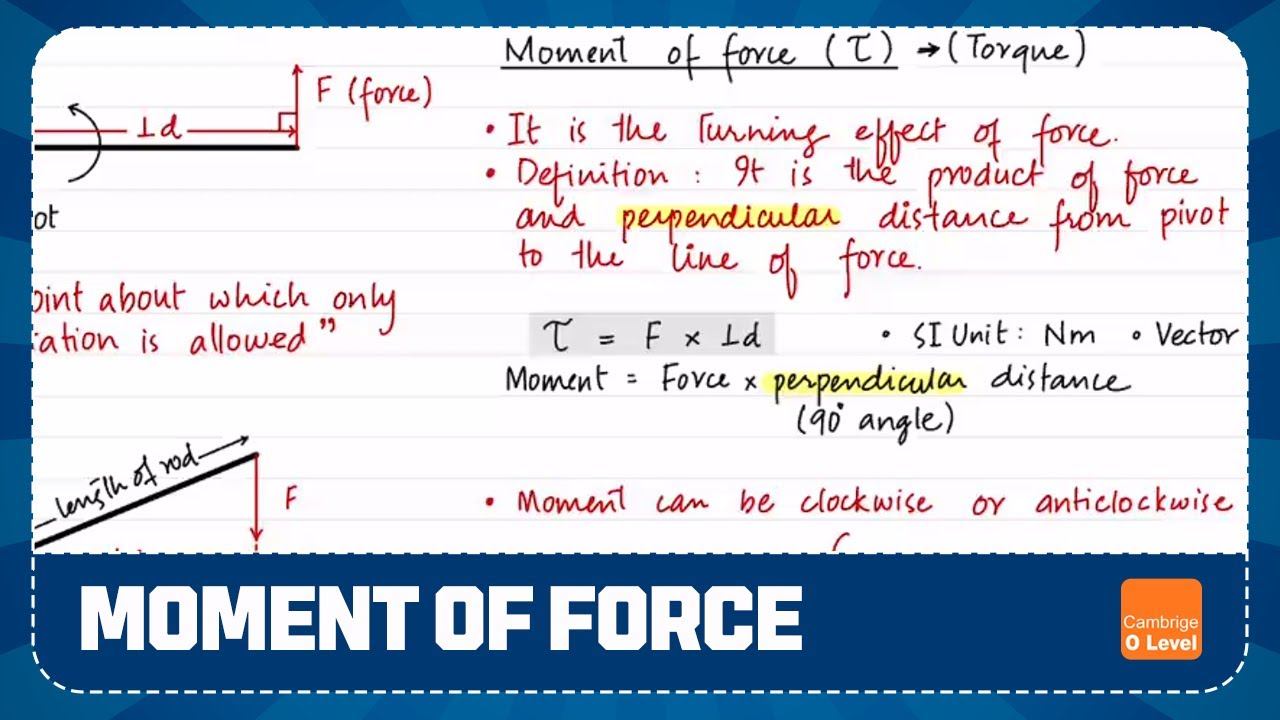 Moment of force (τ) → (Torque)
F (force)
⊥d
• It is the Turning effect of force.
• Definition : It is the product of force
and perpendicular distance from pivot
to the line of force.
ot
oint about which only
ation is allowed”
τ = F × ⊥d
• SI Unit : Nm • Vector
Moment = Force × perpendicular distance
(90° angle)
length of rod
F
• Moment can be clockwise or anticlockwise
MOMENT OF FORCE
Cambrige
O Level